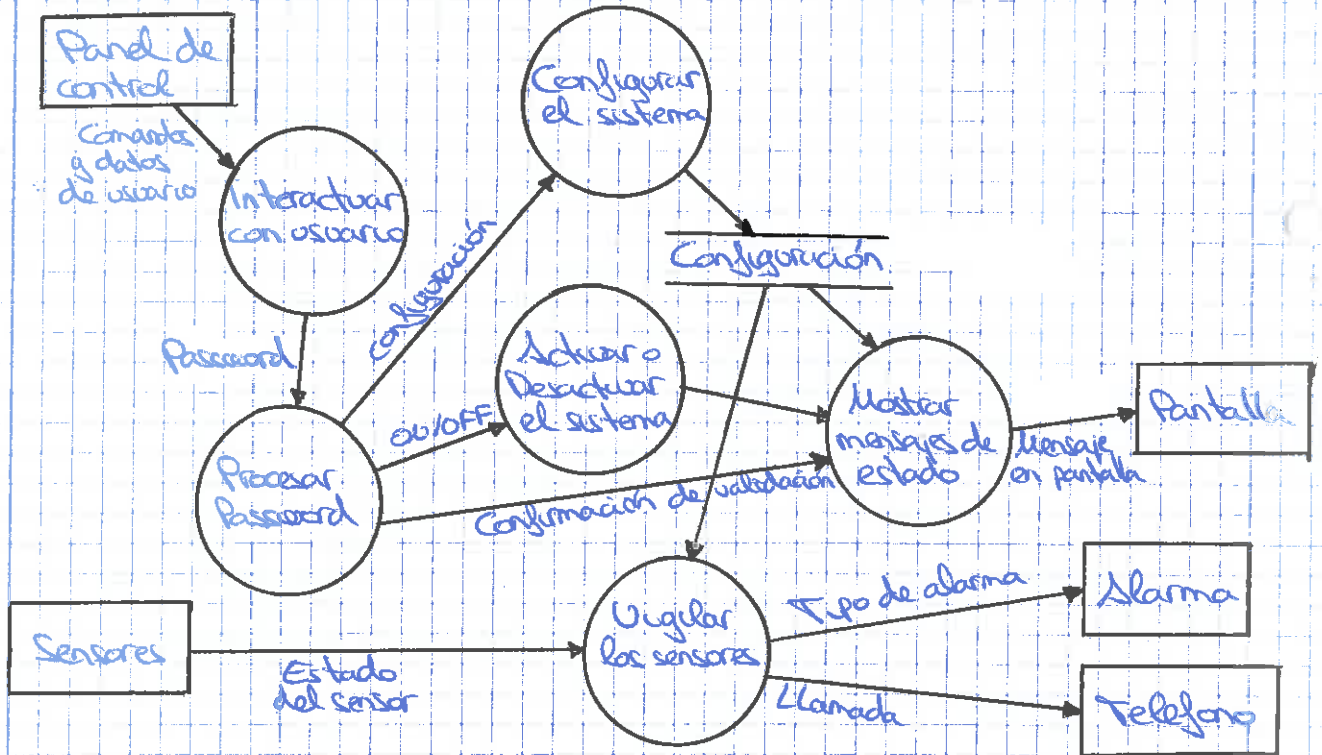 Panel de
control
Comandos
y datos
de usuario
Interactuar
con usuario
Configurar
el sistema
Configuración
Configuración
Password
ON/OFF
Activar o
Desactivar
el sistema
Procesar
Password
Confirmación de validación
Mostrar
mensajes de
estado
Mensaje
en pantalla
Pantalla
Sensores
Estado
del sensor
Vigilar
los sensores
Tipo de alarma
Alarma
LLamada
Telefono